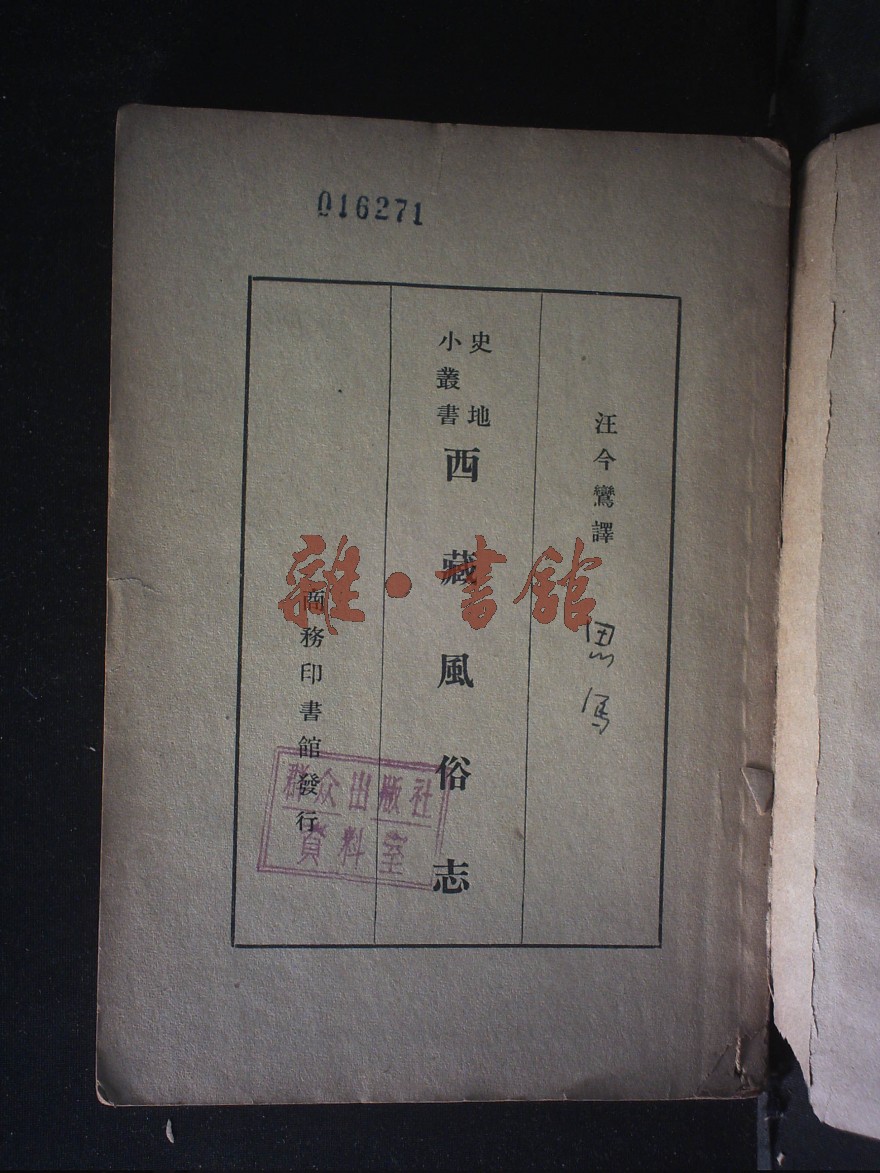 016271
汪今鸞譯
史地
小叢書
西藏風俗志
商務印書館發行
雜·書館
群众出版社
資料室